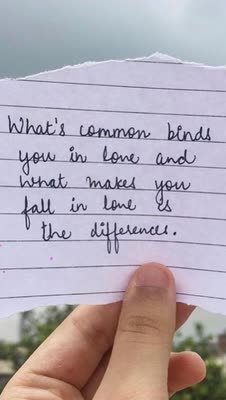 What's common binds
you in love and
what makes you
fall in love is
the differences.